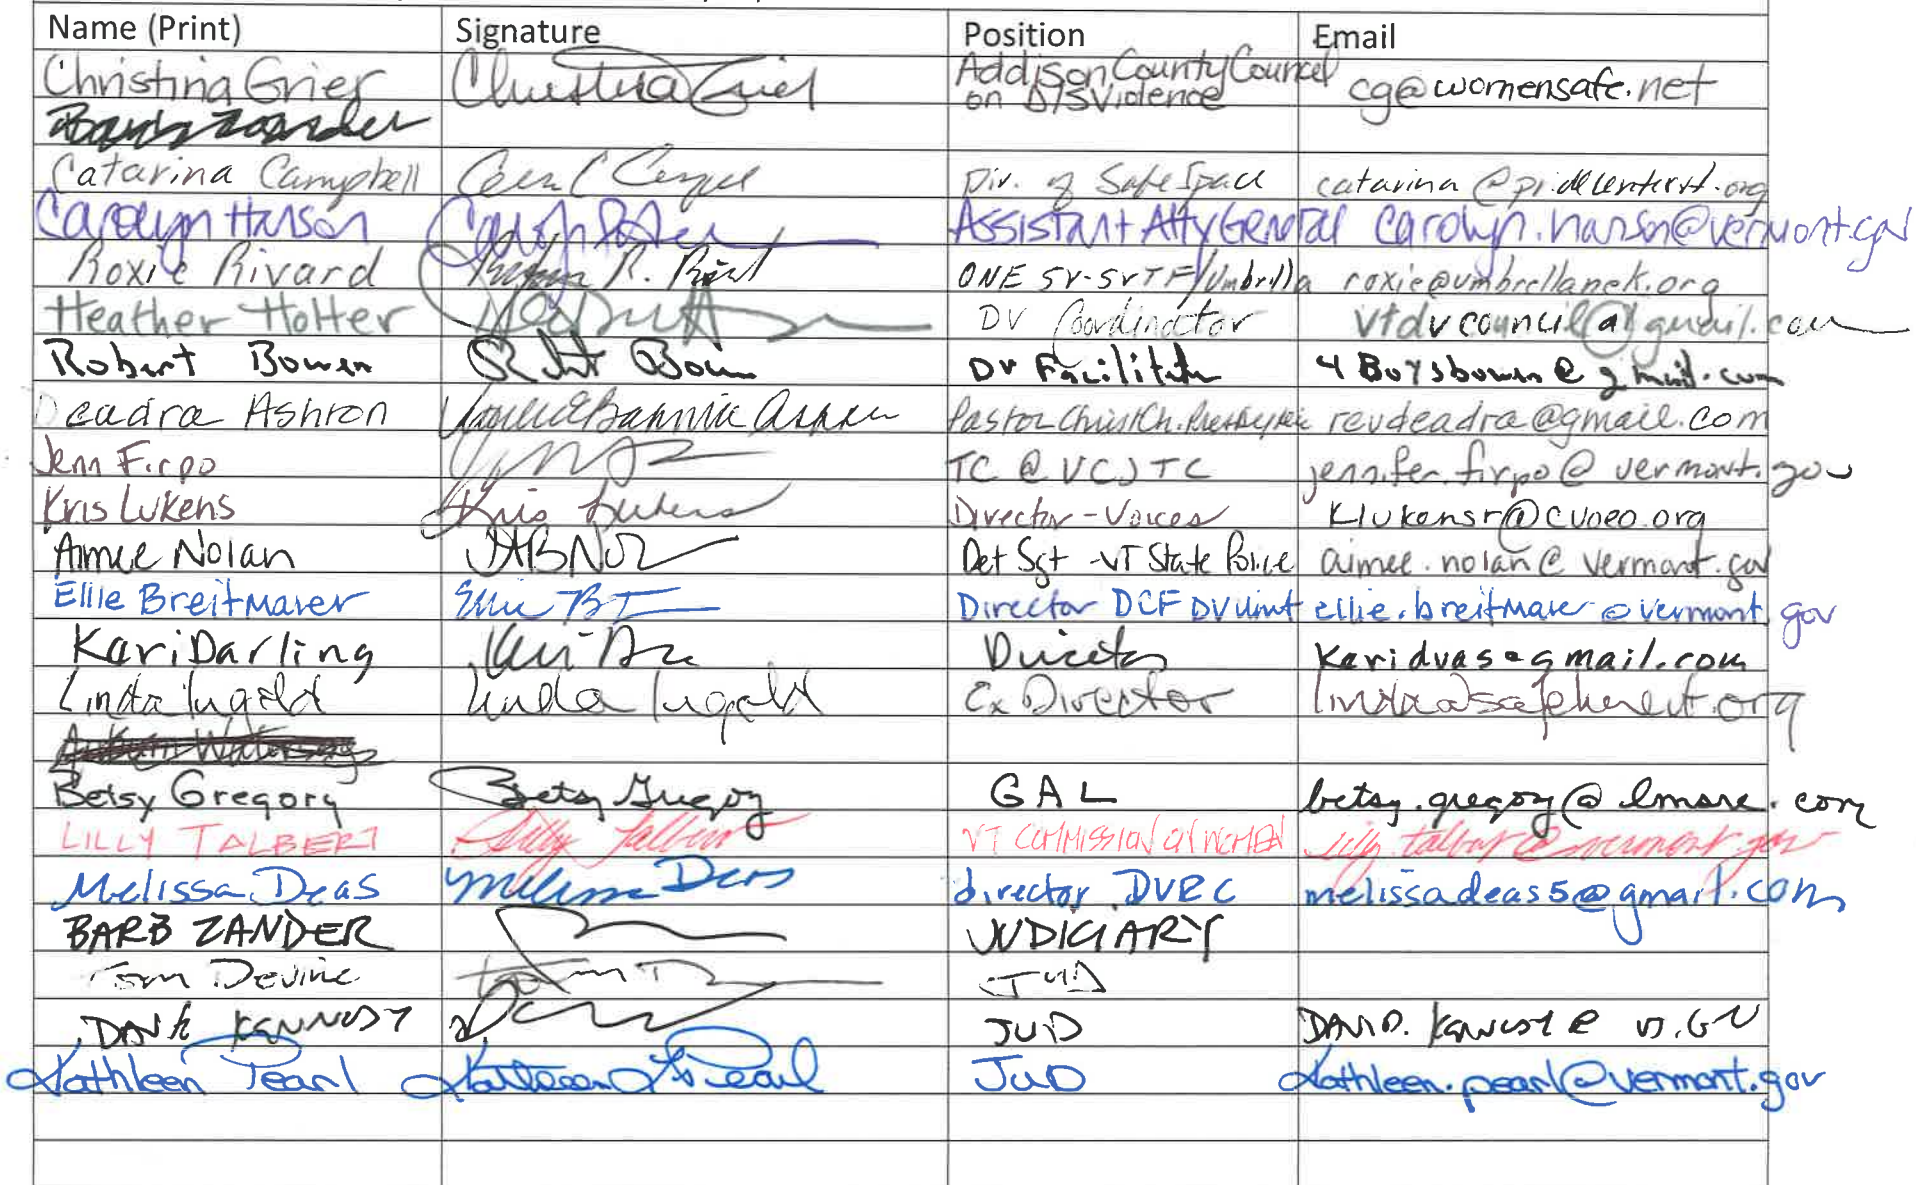 Name (Print) Signature Position Email
Christina Grier Christina Grier Addison County Councel on D/S Violence cg@womensafe.net
Barb Zander
Catarina Campbell Div. of Safe Space catarina@pridecentervt.org
Carolyn Hanson Assistant Atty General carolyn.hanson@vermont.gov
Roxie Rivard R. ONE SV-SVTF/Umbrella roxie@umbrellanek.org
Heather Holter DV Coordinator vtdvcouncil@gmail.com
Robert Bowen Robert Bowen DV Facilitator 4Boysbowen@gmail.com
Deadra Ashton Pastor Christ Ch. Presbyterian revdeadra@gmail.com
Jenn Firpo TC @ VCJTC jennifer.firpo@vermont.gov
Kris Lukens Kris Lukens Director - Voices Klukensr@cvoeo.org
Aimee Nolan Det Sgt - VT State Police aimee.nolan@vermont.gov
Ellie Breitmaier Director DCF DV unit ellie.breitmaier@vermont.gov
Kari Darling Director Karidvas@gmail.com
Linda Ingold Linda Ingold Ex Director
Betsy Gregory Betsy Gregory GAL
LILLY TALBERT Lilly Talbert VT COMMISSION ON WOMEN lilly.talbert@vermont.gov
Melissa Deas Melissa Deas director DVRC melissadeas5@gmail.com
BARB ZANDER JUDICIARY
Tom Devine JUD
KENNEDY JUD
Kathleen Pearl Kathleen Pearl JUD Kathleen.pearl@vermont.gov